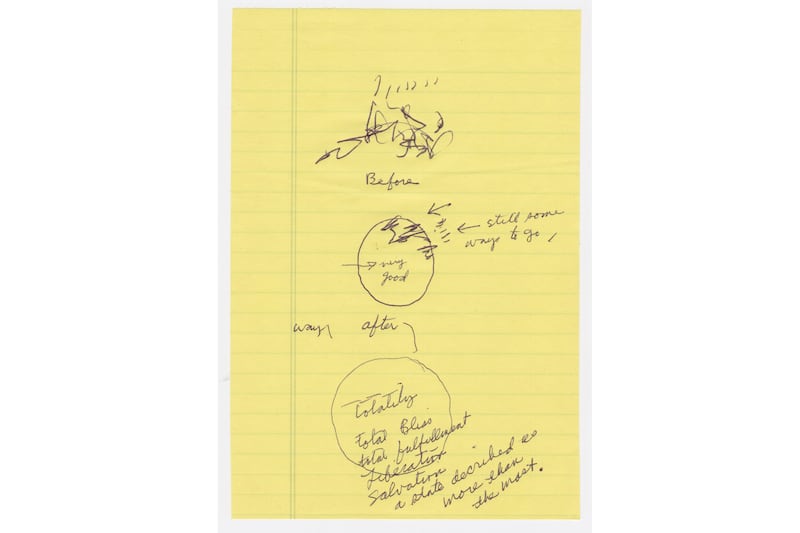 Before
still some
ways to go
very
good
way after
Totality
total Bliss
total fulfillment
Liberation
Salvation
a state decribed as
more than
the most.